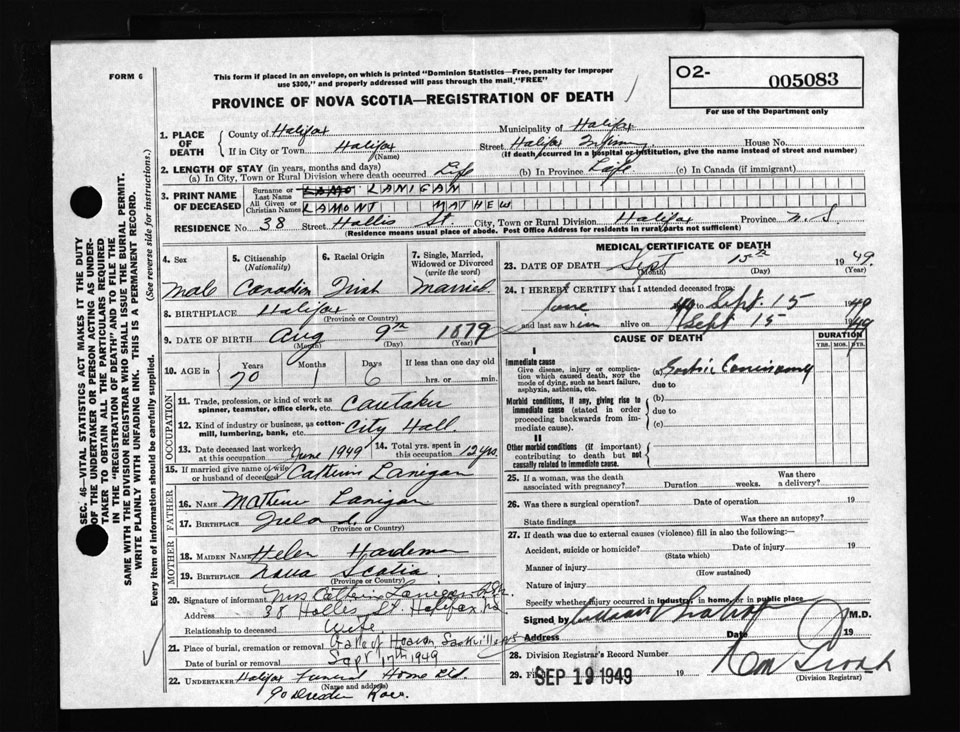 FORM 6
This form if placed in an envelope, on which is printed "Dominion Statistics—Free, penalty for improper
use $300," and properly addressed will pass through the mail, "FREE"
PROVINCE OF NOVA SCOTIA—REGISTRATION OF DEATH
O2- 005083
For use of the Department only
SEC. 46—VITAL STATISTICS ACT MAKES IT THE DUTY
OF THE UNDERTAKER OR PERSON ACTING AS UNDER-
TAKER TO OBTAIN ALL THE PARTICULARS REQUIRED
IN THE "REGISTRATION OF DEATH" AND TO FILE THE
SAME WITH THE DIVISION REGISTRAR WHO SHALL ISSUE THE BURIAL PERMIT.
WRITE PLAINLY WITH UNFADING INK. THIS IS A PERMANENT RECORD.
Every item of information should be carefully supplied. (See reverse side for instructions.)
1. PLACE OF DEATH
County of Halifax Municipality of Halifax
If in City or Town Halifax Street Halifax House No.
(Name) (If death occurred in a hospital or institution, give the name instead of street and number)
2. LENGTH OF STAY (in years, months and days)
(a) In City, Town or Rural Division where death occurred Life (b) In Province Life (c) In Canada (if immigrant)
3. PRINT NAME OF DECEASED
Surname or Last Name LANIGAN
All Given or Christian Names LAMONT MATHEW
RESIDENCE No. 38 Street Hollis St. City, Town or Rural Division Halifax Province N.S
(Residence means usual place of abode. Post Office Address for residents in rural parts not sufficient)
4. Sex 5. Citizenship (Nationality) 6. Racial Origin 7. Single, Married, Widowed or Divorced (write the word)
Male Canadian Irish Married
8. BIRTHPLACE Halifax
(Province or Country)
9. DATE OF BIRTH Aug 9th 1879
(Month) (Day) (Year)
10. AGE in Years Months Days If less than one day old
70 1 6 hrs. or min.
OCCUPATION
11. Trade, profession, or kind of work as spinner, teamster, office clerk, etc. Caretaker
12. Kind of industry or business, as cotton-mill, lumbering, bank, etc. City Hall
13. Date deceased last worked at this occupation June 1949 14. Total yrs. spent in this occupation 12 yrs.
15. If married give name of wife or husband of deceased Catherine Lanigan
FATHER
16. Name Matthew Lanigan
17. Birthplace Ireland
(Province or Country)
MOTHER
18. Maiden Name Helen Hardeman
19. Birthplace Nova Scotia
(Province or Country)
20. Signature of informant Mrs Catherine Lanigan
Address 38 Hollis St. Halifax, N.S.
Relationship to deceased Wife
21. Place of burial, cremation or removal Gate of Heaven Sackville N.S
Date of burial or removal Sept 17th 1949
22. UNDERTAKER Halifax Funeral Home Ltd.
(Name and address)
MEDICAL CERTIFICATE OF DEATH
23. DATE OF DEATH Sept 15th 1949.
(Month) (Day) (Year)
24. I HEREBY CERTIFY that I attended deceased from
June 49 to Sept. 15 1949
and last saw him alive on Sept 15 1949
CAUSE OF DEATH
DURATION
YRS. MOS. DYS.
I
Immediate cause
Give disease, injury or complication which caused death, NOT the mode of dying, such as heart failure, asphyxia, asthenia, etc.
(a)
due to
Morbid conditions, if any, giving rise to immediate cause (stated in order proceeding backwards from immediate cause).
(b)
due to
(c)
II
Other morbid conditions (if important) contributing to death but not causally related to immediate cause.
25. If a woman, was the death associated with pregnancy? Duration weeks. Was there a delivery?
26. Was there a surgical operation? Date of operation 19
State findings Was there an autopsy?
27. If death was due to external causes (violence) fill in also the following:
Accident, suicide or homicide? Date of injury 19
(State which)
Manner of injury
(How sustained)
Nature of injury
Specify whether injury occurred in industry, in home, or in public place.
Signed by M.D.
Address Date 19
28. Division Registrar's Record Number
29. Filed SEP 19 1949 19
(Division Registrar)